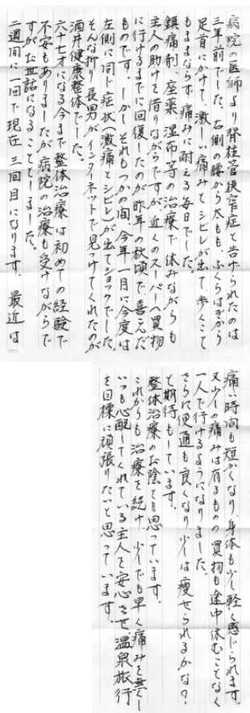 病院の医師より脊柱管狭窄症と告げられたのは
三年前でした。右側の腰から太もも、ふくらはぎから
足首にかけて、激しい痛みとシビレが出て歩くこと
もままならず、痛みに耐える毎日でした。
鎮痛剤、座薬、湿布等の治療で休みながらも
主人の助けを借りながらですが近くのスーパーに買物
に行けるまでに回復したのが昨年の秋頃で喜んだ
ものです。しかしそれもつかの間、今年一月に今度は
左側に同じ症状（激痛とシビレ）が出てショックでした。
そんな折り長男がインターネットで見つけてくれたのが
酒井健康整体でした。
六十七才になる今まで整体治療は初めての経験で
不安もありましたが病院の治療も受けながらで
すがお世話になることとしました。
二週間に一回で現在三回目になります。最近は
痛い時間も短かくなり身体も少し軽く感じられます。
又少しの痛みは有るものの買物も途中休むことなく
一人で行けるようになりました。
さらに便通も良くなり少しは痩せられるかな？
と期待もしています。
整体治療のお陰と思っています。
これからも治療を続け少しでも早く痛みを無くし
いつも心配してくれている主人を安心させ温泉旅行
を目標に頑張りたいと思っています。